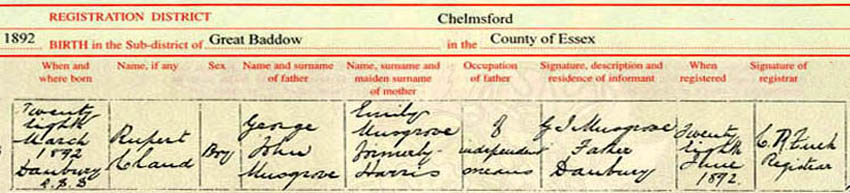 REGISTRATION DISTRICT Chelmsford
1892 BIRTH in the Sub-district of Great Baddow in the County of Essex
When and where born
Name, if any
Sex
Name and surname of father
Name, surname and maiden surname of mother
Occupation of father
Signature, description and residence of informant
When registered
Signature of registrar
Twenty
eighth
March
1892
Danbury
R.S.D
Rupert
Claud
Boy
George
John
Musgrove
Emily
Musgrove
formerly
Harris
Of
independent
means
G J Musgrove
Father
Danbury
Twenty
eighth
June
1892
C. R.
Registrar